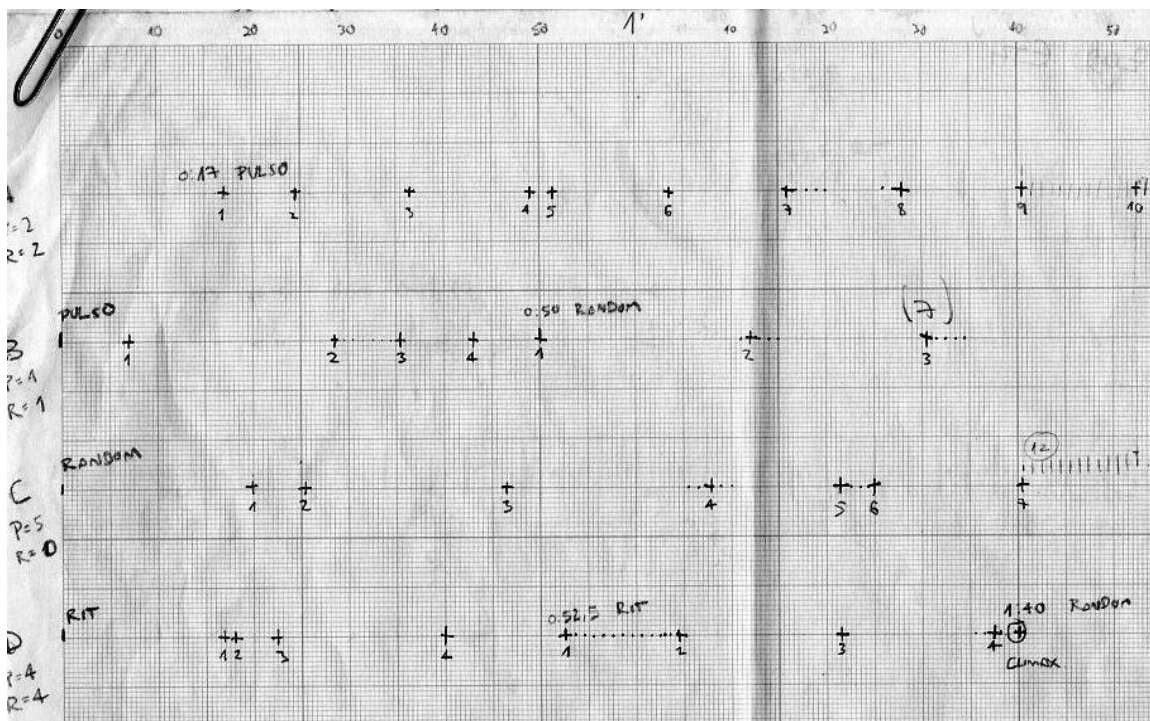 0 10 20 30 40 50 1' 10 20 30 40 50
0:17 PULSO
1 2 3 4 5 6 7 8 9 10
A
P=2
R=2
PULSO
0:50 RANDOM
(7)
1 2 3 4 1 2 3
B
P=1
R=1
RANDOM
12
1 2 3 4 5 6 7
C
P=5
R=0
RIT
0:52,5 RIT
1:40 RANDOM
1 2 3 4 1 2 3 4
CLIMAX
D
P=4
R=4